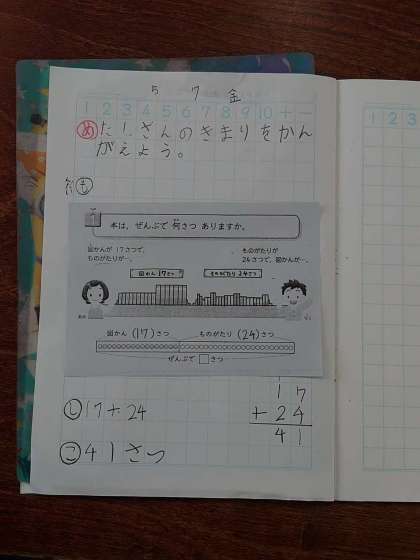 5 7 金
1 2 3 4 5 6 7 8 9 10 + −
め たしざんのきまりをかん
がえよう。
も
1 本は、ぜんぶで 何さつ ありますか。
図かんが 17さつで、
ものがたりが…。
ものがたりが
24さつで、図かんが…。
図かん 17さつ ものがたり 24さつ
図かん (17) さつ ものがたり (24) さつ
ぜんぶで □ さつ
1 7
+ 2 4
4 1
し 17+24
こ 41さつ
1 2 3